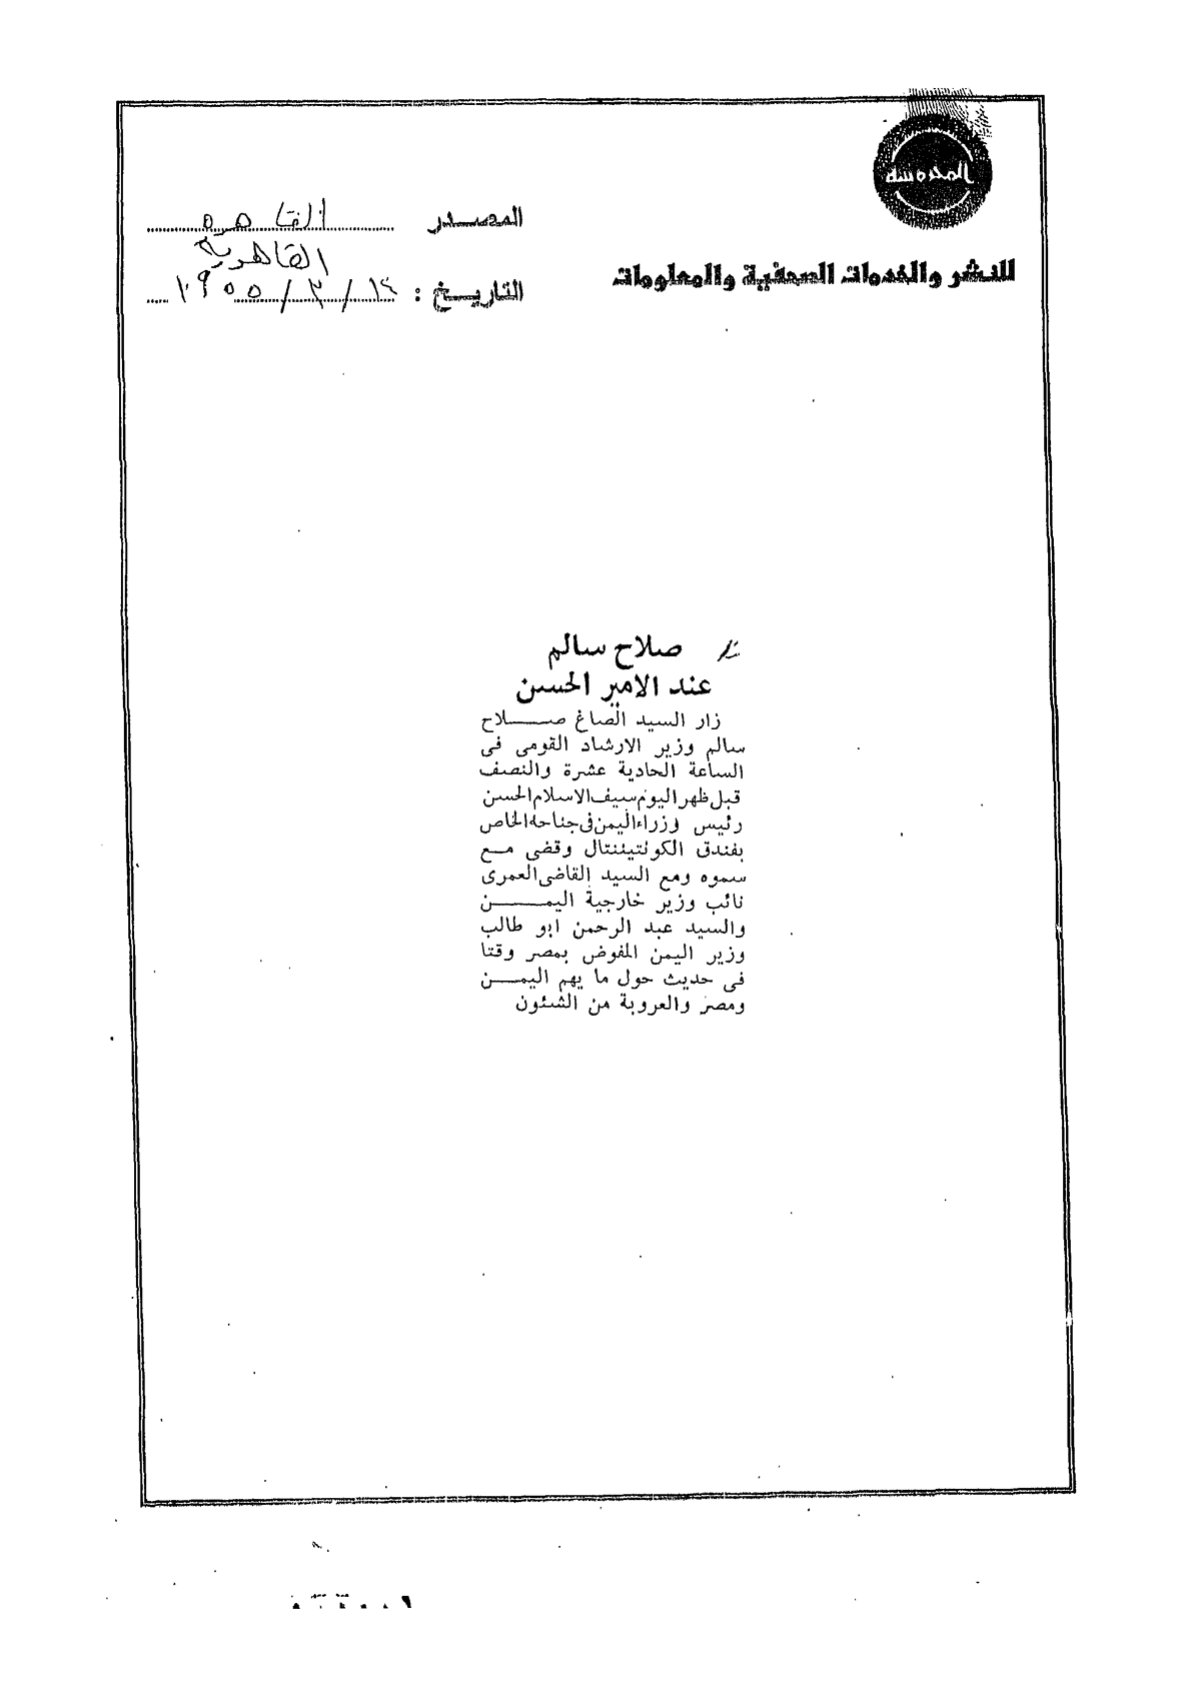 المحروسة
للنشر والخدمات الصحفية والمعلومات
المصدر القاهره
القاهرية
التاريخ : ١٤ / ٣ / ١٩٥٥
صلاح سالم
عند الامير الحسن
زار السيد الصاغ صلاح
سالم وزير الارشاد القومى فى
الساعة الحادية عشرة والنصف
قبل ظهر اليوم سيف الاسلام الحسن
رئيس وزراء اليمن فى جناحه الخاص
بفندق الكونتيننتال وقضى مع
سموه ومع السيد القاضى العمرى
نائب وزير خارجية اليمن
والسيد عبد الرحمن ابو طالب
وزير اليمن المفوض بمصر وقتا
فى حديث حول ما يهم اليمن
ومصر والعروبة من الشئون